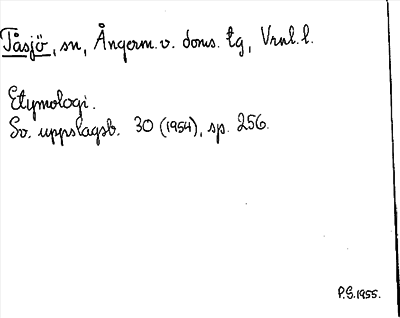 Tåsjö, sn, Ångerm. v. doms. tg, Vrnl. l.
Etymologi.
Sv. uppslagsb. 30 (1954), sp. 256.
P.G. 1955.